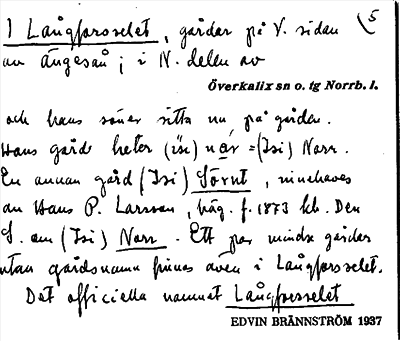 I Långforsselet, gårdar på V. sidan 5
av Ängesån; i N. delen av
Överkalix sn o. tg Norrb. l.
och hans söner sitta nu på gården.
Hans gård heter (isi) når = (Isi) Norr.
En annan gård (Isi) Sörnt, innehaves
av Hans P. Larsson, häg. f. 1873 hb. Den
S. om (Isi) Norr. Ett par mindre gårdar
utan gårdsnamn finnas även i Långforsselet.
Det officiella namnet Långforsselet
EDVIN BRÄNNSTRÖM 1937